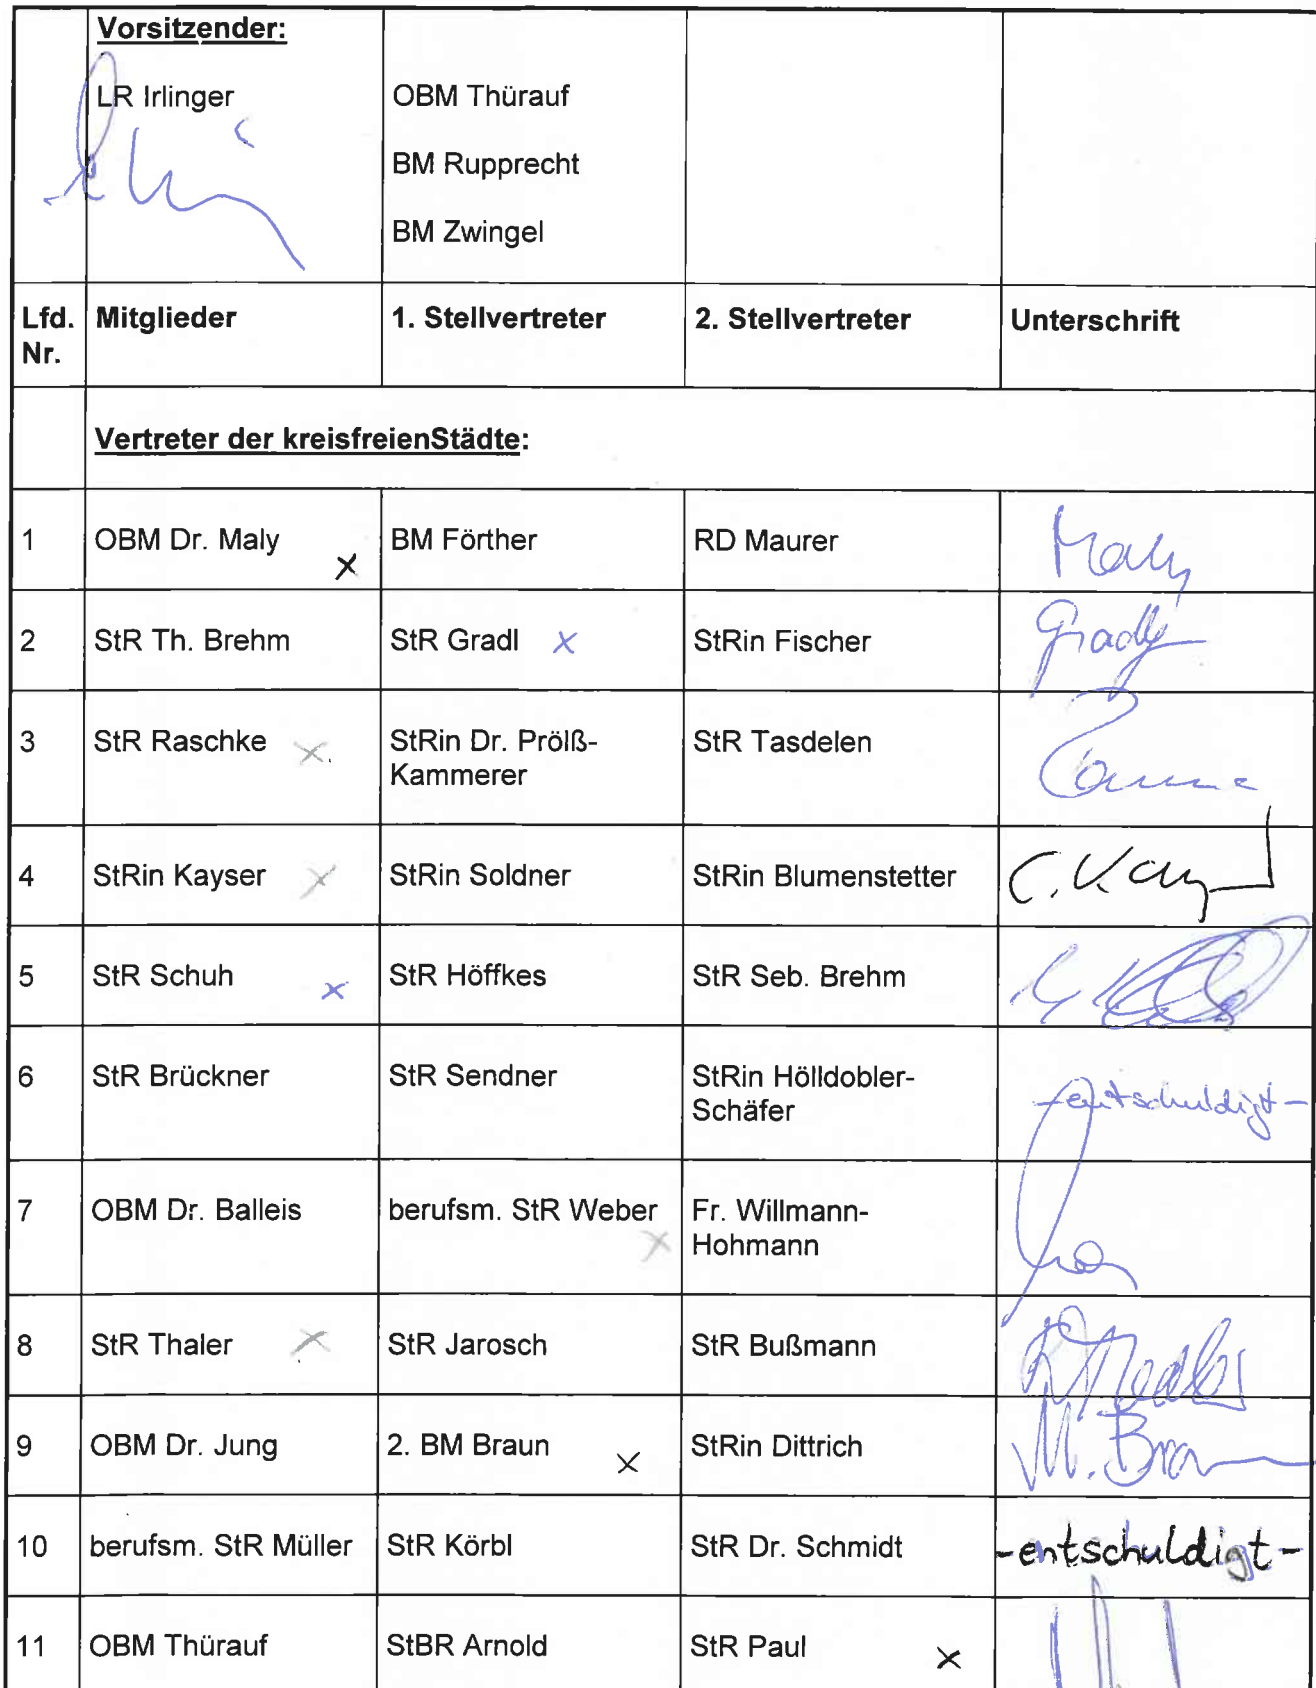 Vorsitzender:
LR Irlinger
OBM Thürauf
BM Rupprecht
BM Zwingel
Lfd. Nr. Mitglieder 1. Stellvertreter 2. Stellvertreter Unterschrift
Vertreter der kreisfreienStädte:
1 OBM Dr. Maly x BM Förther RD Maurer Maly
2 StR Th. Brehm StR Gradl x StRin Fischer Gradl
3 StR Raschke x StRin Dr. Prölß- StR Tasdelen
Kammerer
4 StRin Kayser x StRin Soldner StRin Blumenstetter C. Kayser
5 StR Schuh x StR Höffkes StR Seb. Brehm
6 StR Brückner StR Sendner StRin Hölldobler- -entschuldigt-
Schäfer
7 OBM Dr. Balleis berufsm. StR Weber x Fr. Willmann-
Hohmann
8 StR Thaler x StR Jarosch StR Bußmann
9 OBM Dr. Jung 2. BM Braun x StRin Dittrich M. Braun
10 berufsm. StR Müller StR Körbl StR Dr. Schmidt -entschuldigt-
11 OBM Thürauf StBR Arnold StR Paul x